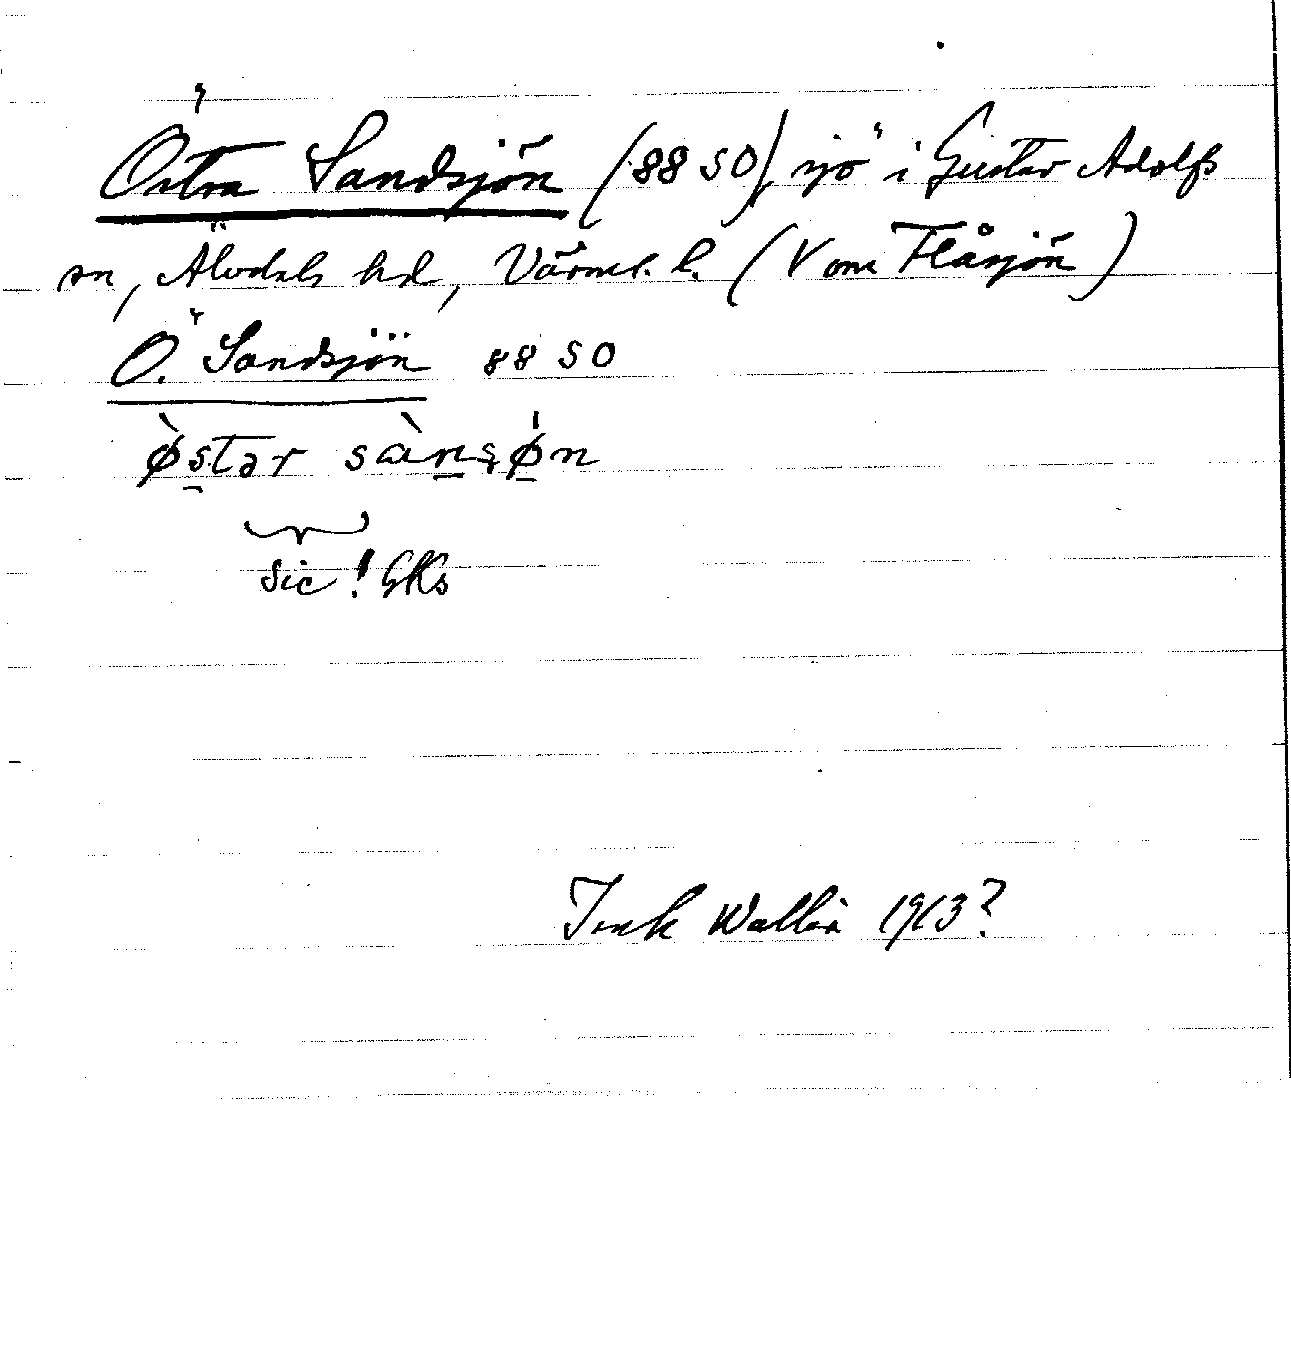 Östra Sandsjön (88 SO) sjö i Gustav Adolfs
sn, Älvdals hd, Värml. l. (V om Flåsjön)
Ö. Sandsjön 88 SO
ø̀stər sànʂø̍n
sic! GKs
Wallén 1913?